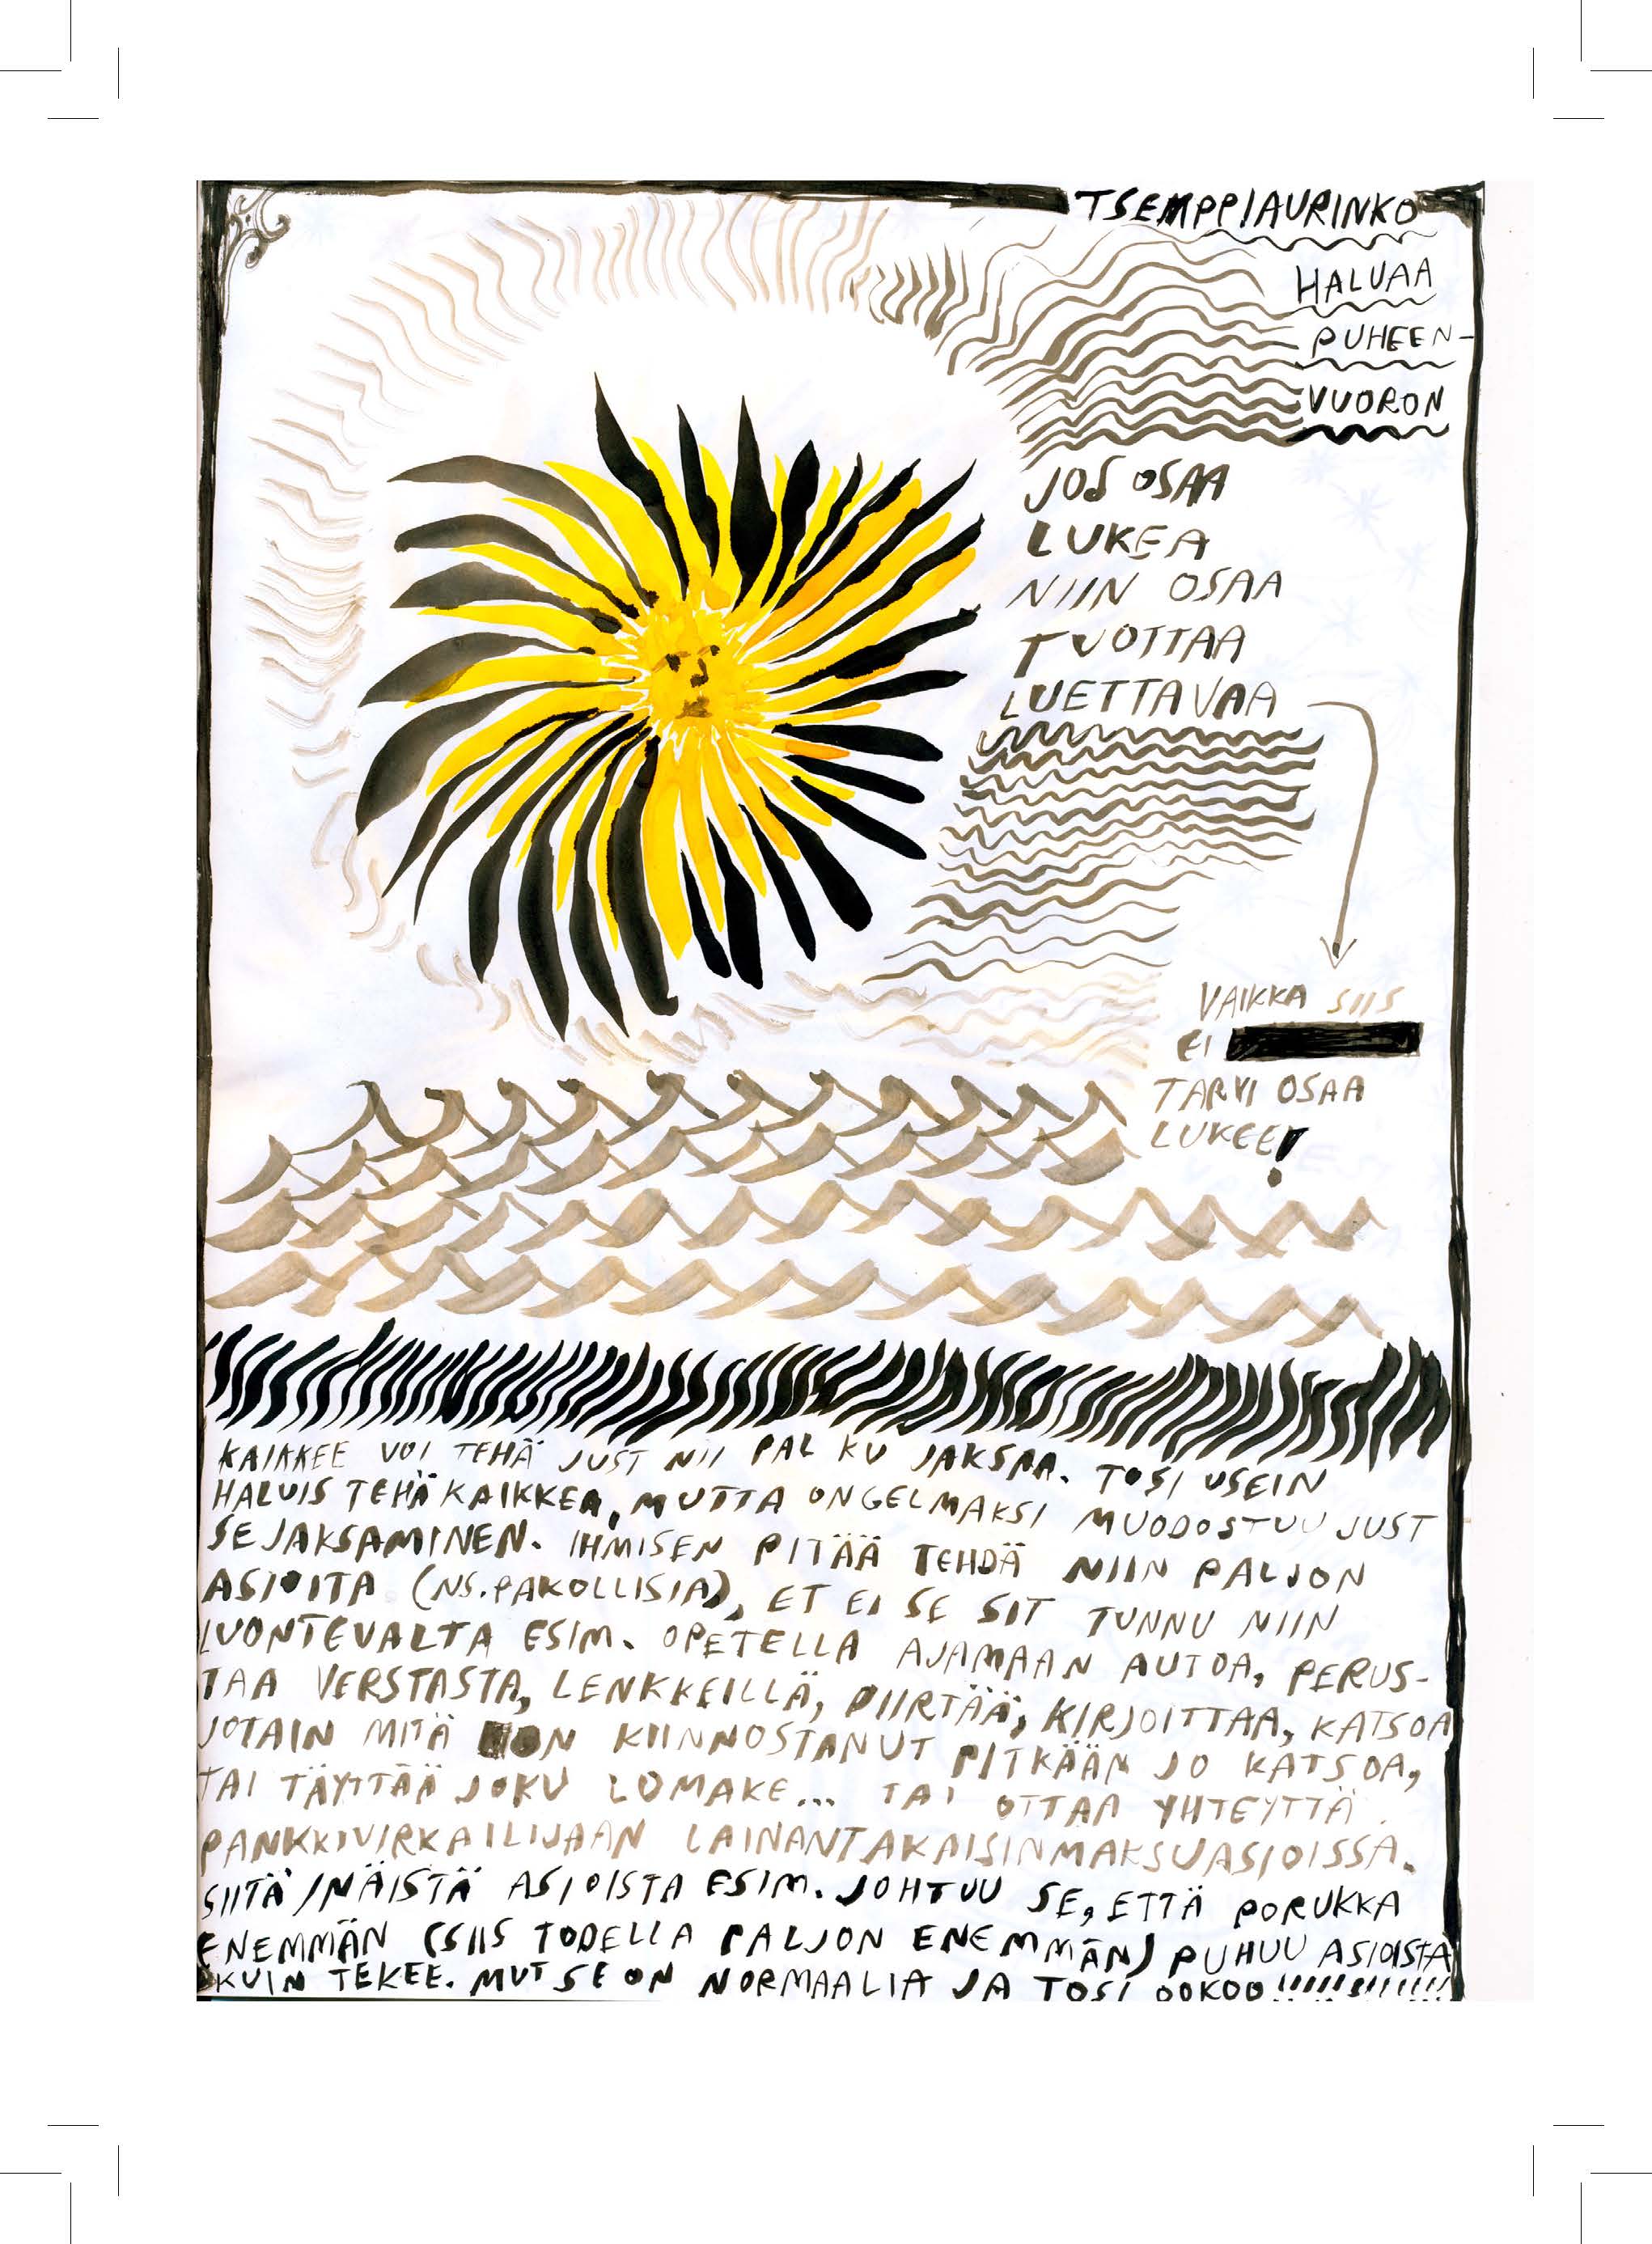 TSEMPPIAURINKO
HALUAA
PUHEEN-
VUORON
JOS OSAA
LUKEA
NIIN OSAA
TUOTTAA
LUETTAVAA
VAIKKA SIIS
EI
TARVI OSAA
LUKEE!
KAIKKEE VOI TEHÄ JUST NII PAL KU JAKSAA. TOSI USEIN
HALUIS TEHÄ KAIKKEA, MUTTA ONGELMAKSI MUODOSTUU JUST
SE JAKSAMINEN. IHMISEN PITÄÄ TEHDÄ NIIN PALJON
ASIOITA (NS. PAKOLLISIA), ET EI SE SIT TUNNU NIIN
LUONTEVALTA ESIM. OPETELLA AJAMAAN AUTOA, PERUS-
TAA VERSTASTA, LENKKEILLÄ, PIIRTÄÄ, KIRJOITTAA, KATSOA
JOTAIN MITÄ ON KIINNOSTANUT PITKÄÄN JO KATSOA,
TAI TÄYTTÄÄ JOKU LOMAKE... TAI OTTAA YHTEYTTÄ
PANKKIVIRKAILIJAAN LAINANTAKAISINMAKSUASIOISSA.
SIITÄ/NÄISTÄ ASIOISTA ESIM. JOHTUU SE, ETTÄ PORUKKA
ENEMMÄN (SIIS TODELLA PALJON ENEMMÄN) PUHUU ASIOISTA
KUIN TEKEE. MUT SE ON NORMAALIA JA TOSI OOKOO!!!!!!!!!!!!